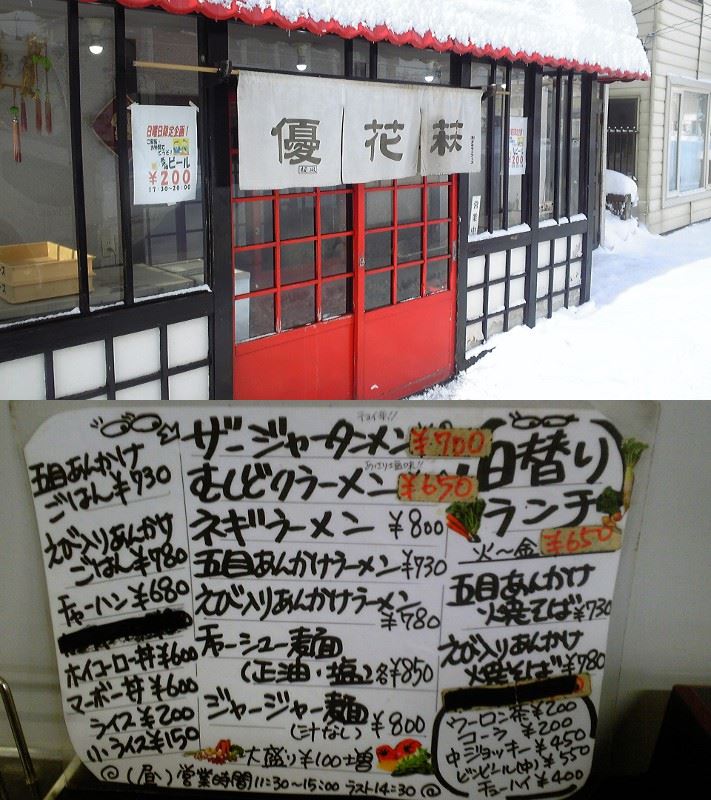 優花萩
日曜日限定企画!
ビール
¥200
17:30~20:00
営業中
五目あんかけ
ごはん¥730
えび入りあんかけ
ごはん¥780
チャーハン¥680
ホイコーロー丼¥600
マーボー丼¥600
ライス¥200
小ライス¥150
チョイ辛!!
ザージャータンメン¥700
あっさり塩味!!
むしどりラーメン¥650
ネギラーメン ¥800
五目あんかけラーメン¥730
えび入りあんかけラーメン
¥780
チャーシュー麺
(正油・塩)各¥850
ジャージャー麺
(汁なし) ¥800
大盛り¥100増
日替り
ランチ
火~金 ¥650
五目あんかけ
火焼そば¥730
えび入りあんかけ
火焼そば¥780
ウーロン茶¥200
コーラ ¥200
中ジョッキー¥450
ビンビール(中)¥550
チューハイ¥400
◎(昼)営業時間11:30~15:00 ラスト14:30◎